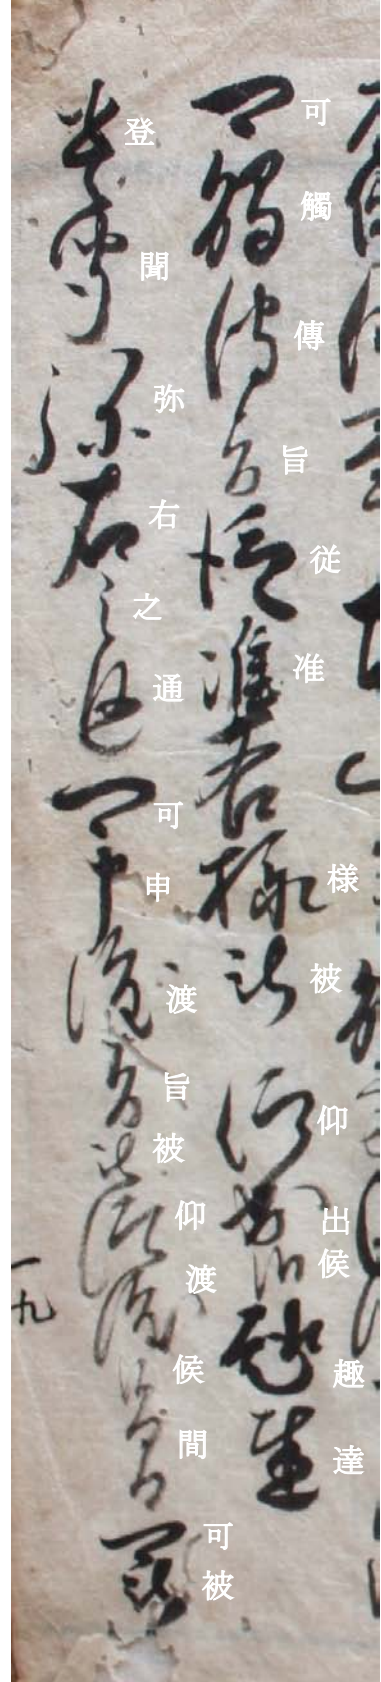 可觸傳旨従准后様被仰出候趣達
登聞弥右之通可申渡旨被仰渡候間可被
一九